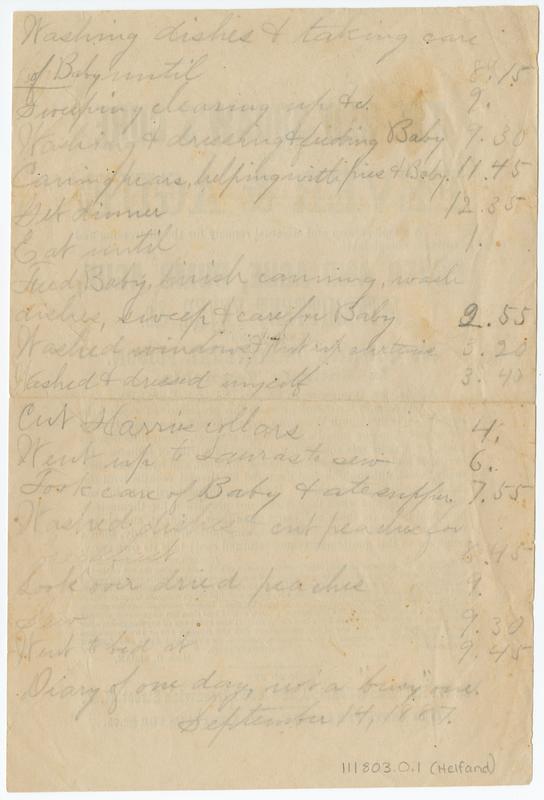 Washing dishes & taking care
of Baby until 8.15
Sweeping clearing up &c. 9.
Washing & dressing & feeding Baby 9.30
Canning pears, helping with pies & Baby. 11.45
Get dinner 12.35
Eat until 1.
Feed Baby, finish canning, wash
dishes, sweep & care for Baby 2.55
Washed windows & put up curtains 3.20
Washed & dressed myself 3.40
Cut Harris collars 4.
Went up to Laura's to sew 6.
Took care of Baby & ate supper 7.55
Washed dishes & cut peaches for
breakfast 8.45
Look over dried peaches 9.
Sew 9.30
Went to bed at 9.45
Diary of one day, not a "busy" one.
September 14, 1887.
111803.0.1 (Helfand)